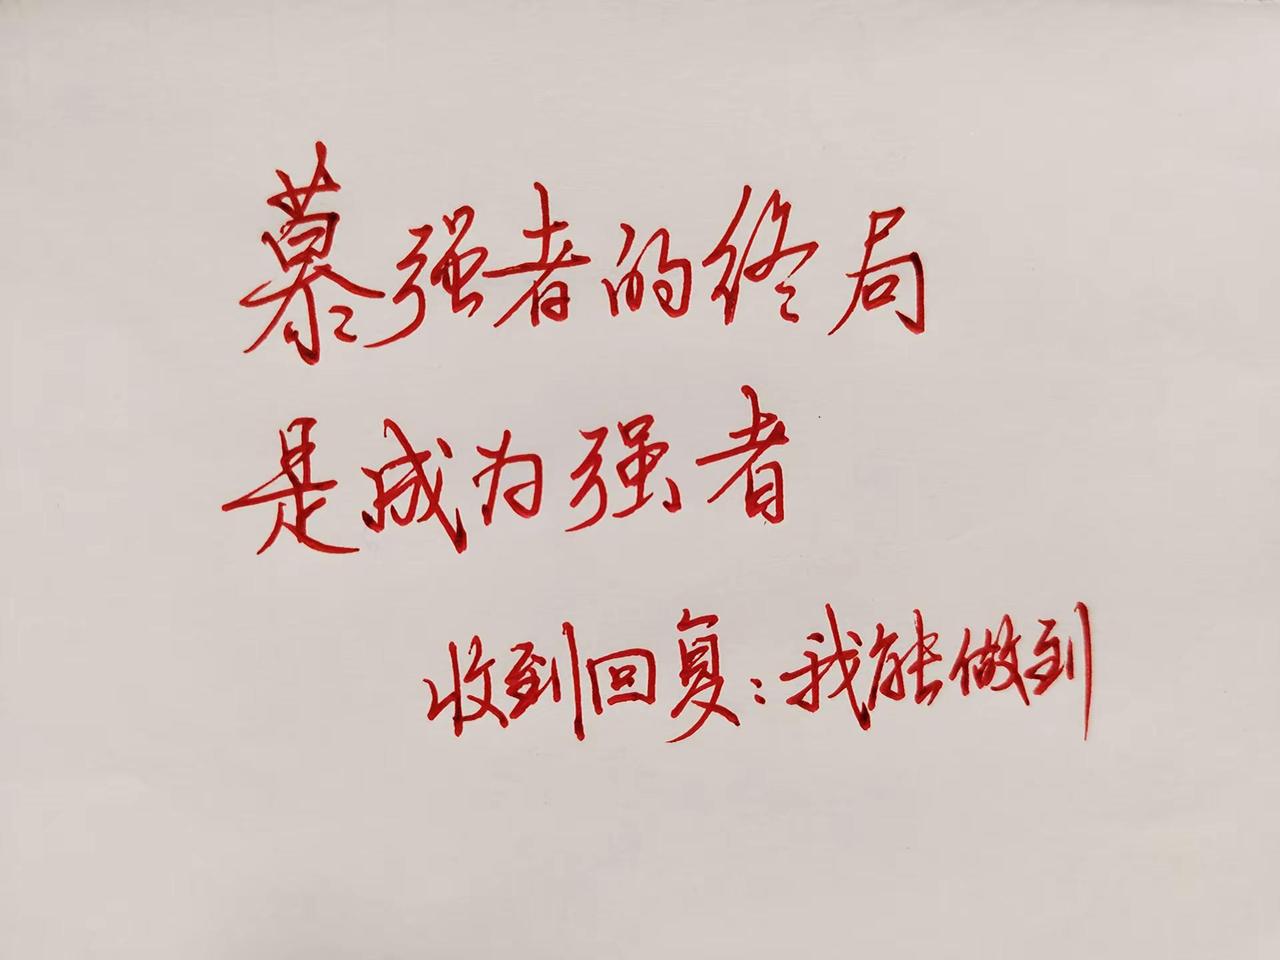 慕强者的终局
是成为强者
收到回复:我能做到